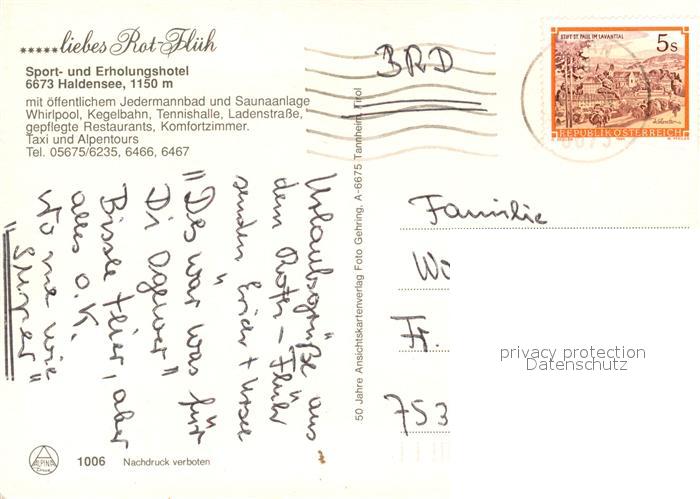 .....liebes Rot-Flüh
Sport- und Erholungshotel
6673 Haldensee, 1150 m
mit öffentlichem Jedermannbad und Saunaanlage
Whirlpool, Kegelbahn, Tennishalle, Ladenstraße,
gepflegte Restaurants, Komfortzimmer.
Taxi und Alpentours
Tel. 05675/6235, 6466, 6467
Urlaubsgrüße aus
dem Roten-Flüh
senden Erich +
"Des wär was für
Di
Bissle teier, aber
alles o.K.
"Super"
1006
Nachdruck verboten
50 Jahre Ansichtskartenverlag Foto Gehring, A-6675 Tannheim, Tirol
BRD
STIFT ST. PAUL IM LAVANTTAL
5s
REPUBLIK ÖSTERREICH
Familie
Fr.
753
privacy protection
Datenschutz